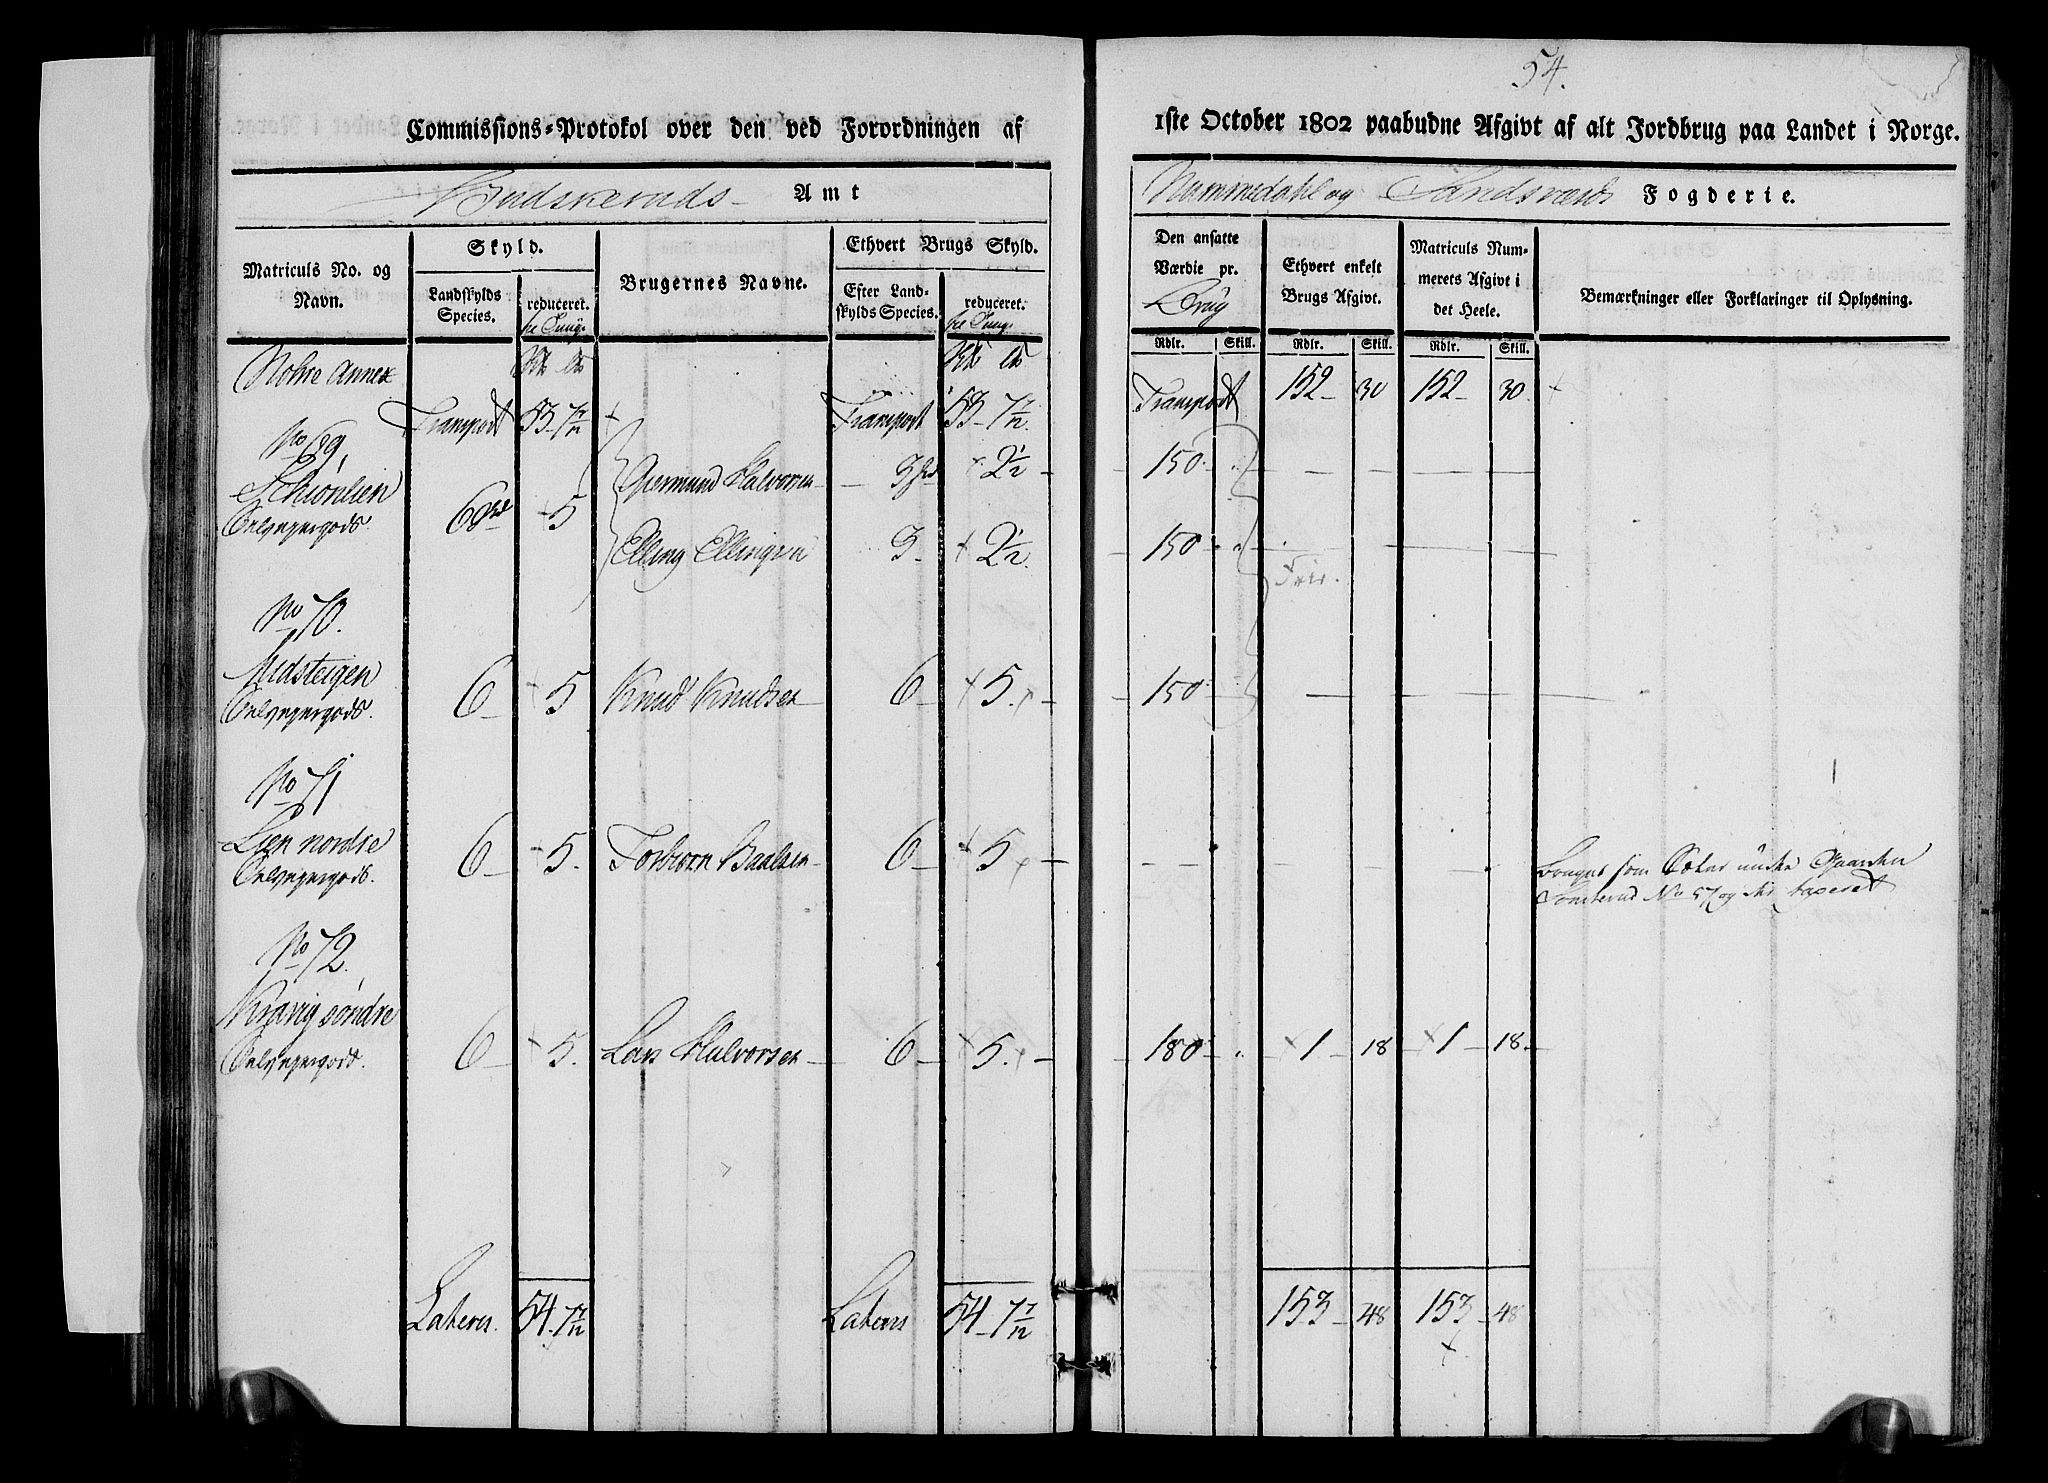 54.
Commissions-Protokol over den ved Forordningen af 1ste October 1802 paabudne Afgivt af alt Jordbrug paa Landet i Norge.
Budskeruds Amt
Nummedahl og Sandsværds Fogderie.
Matriculs No. og Navn.
Skyld.
Landskylds Species.
reduceret.
Brugernes Navne.
Ethvert Brugs Skyld.
Efter Landskylds Species.
reduceret.
Den ansatte Værdie pr. Brug
Rdlr. Skill.
Ethvert enkelt Brugs Afgivt.
Rdlr. Skill.
Matriculs Nummerets Afgivt i det Heele.
Rdlr. Skill.
Bemærkninger eller Forklaringer til Oplysning.
Annex
Transport 53-7 7/12 Transport 53-7 7/12 Transport 152 30 152 30
No 69
6 5 Halvorsen 3 2 1/2 150
Elling Ellingsen 3 2 1/2 150
Frie.
No 70.
Midsteigen 6 5 Knud Knudsen 6 5. 150
No 71
Lien nordre 6 5. Torbiørn 6 5
som Sæter under Gaarden
No 57 og
No 72.
Kravig søndre 6 5. Lars Halvorsen 6 5. 180 1 18 1 18
Lateris 54-7 7/12 Lateris 54-7 7/12 153 48 153 48